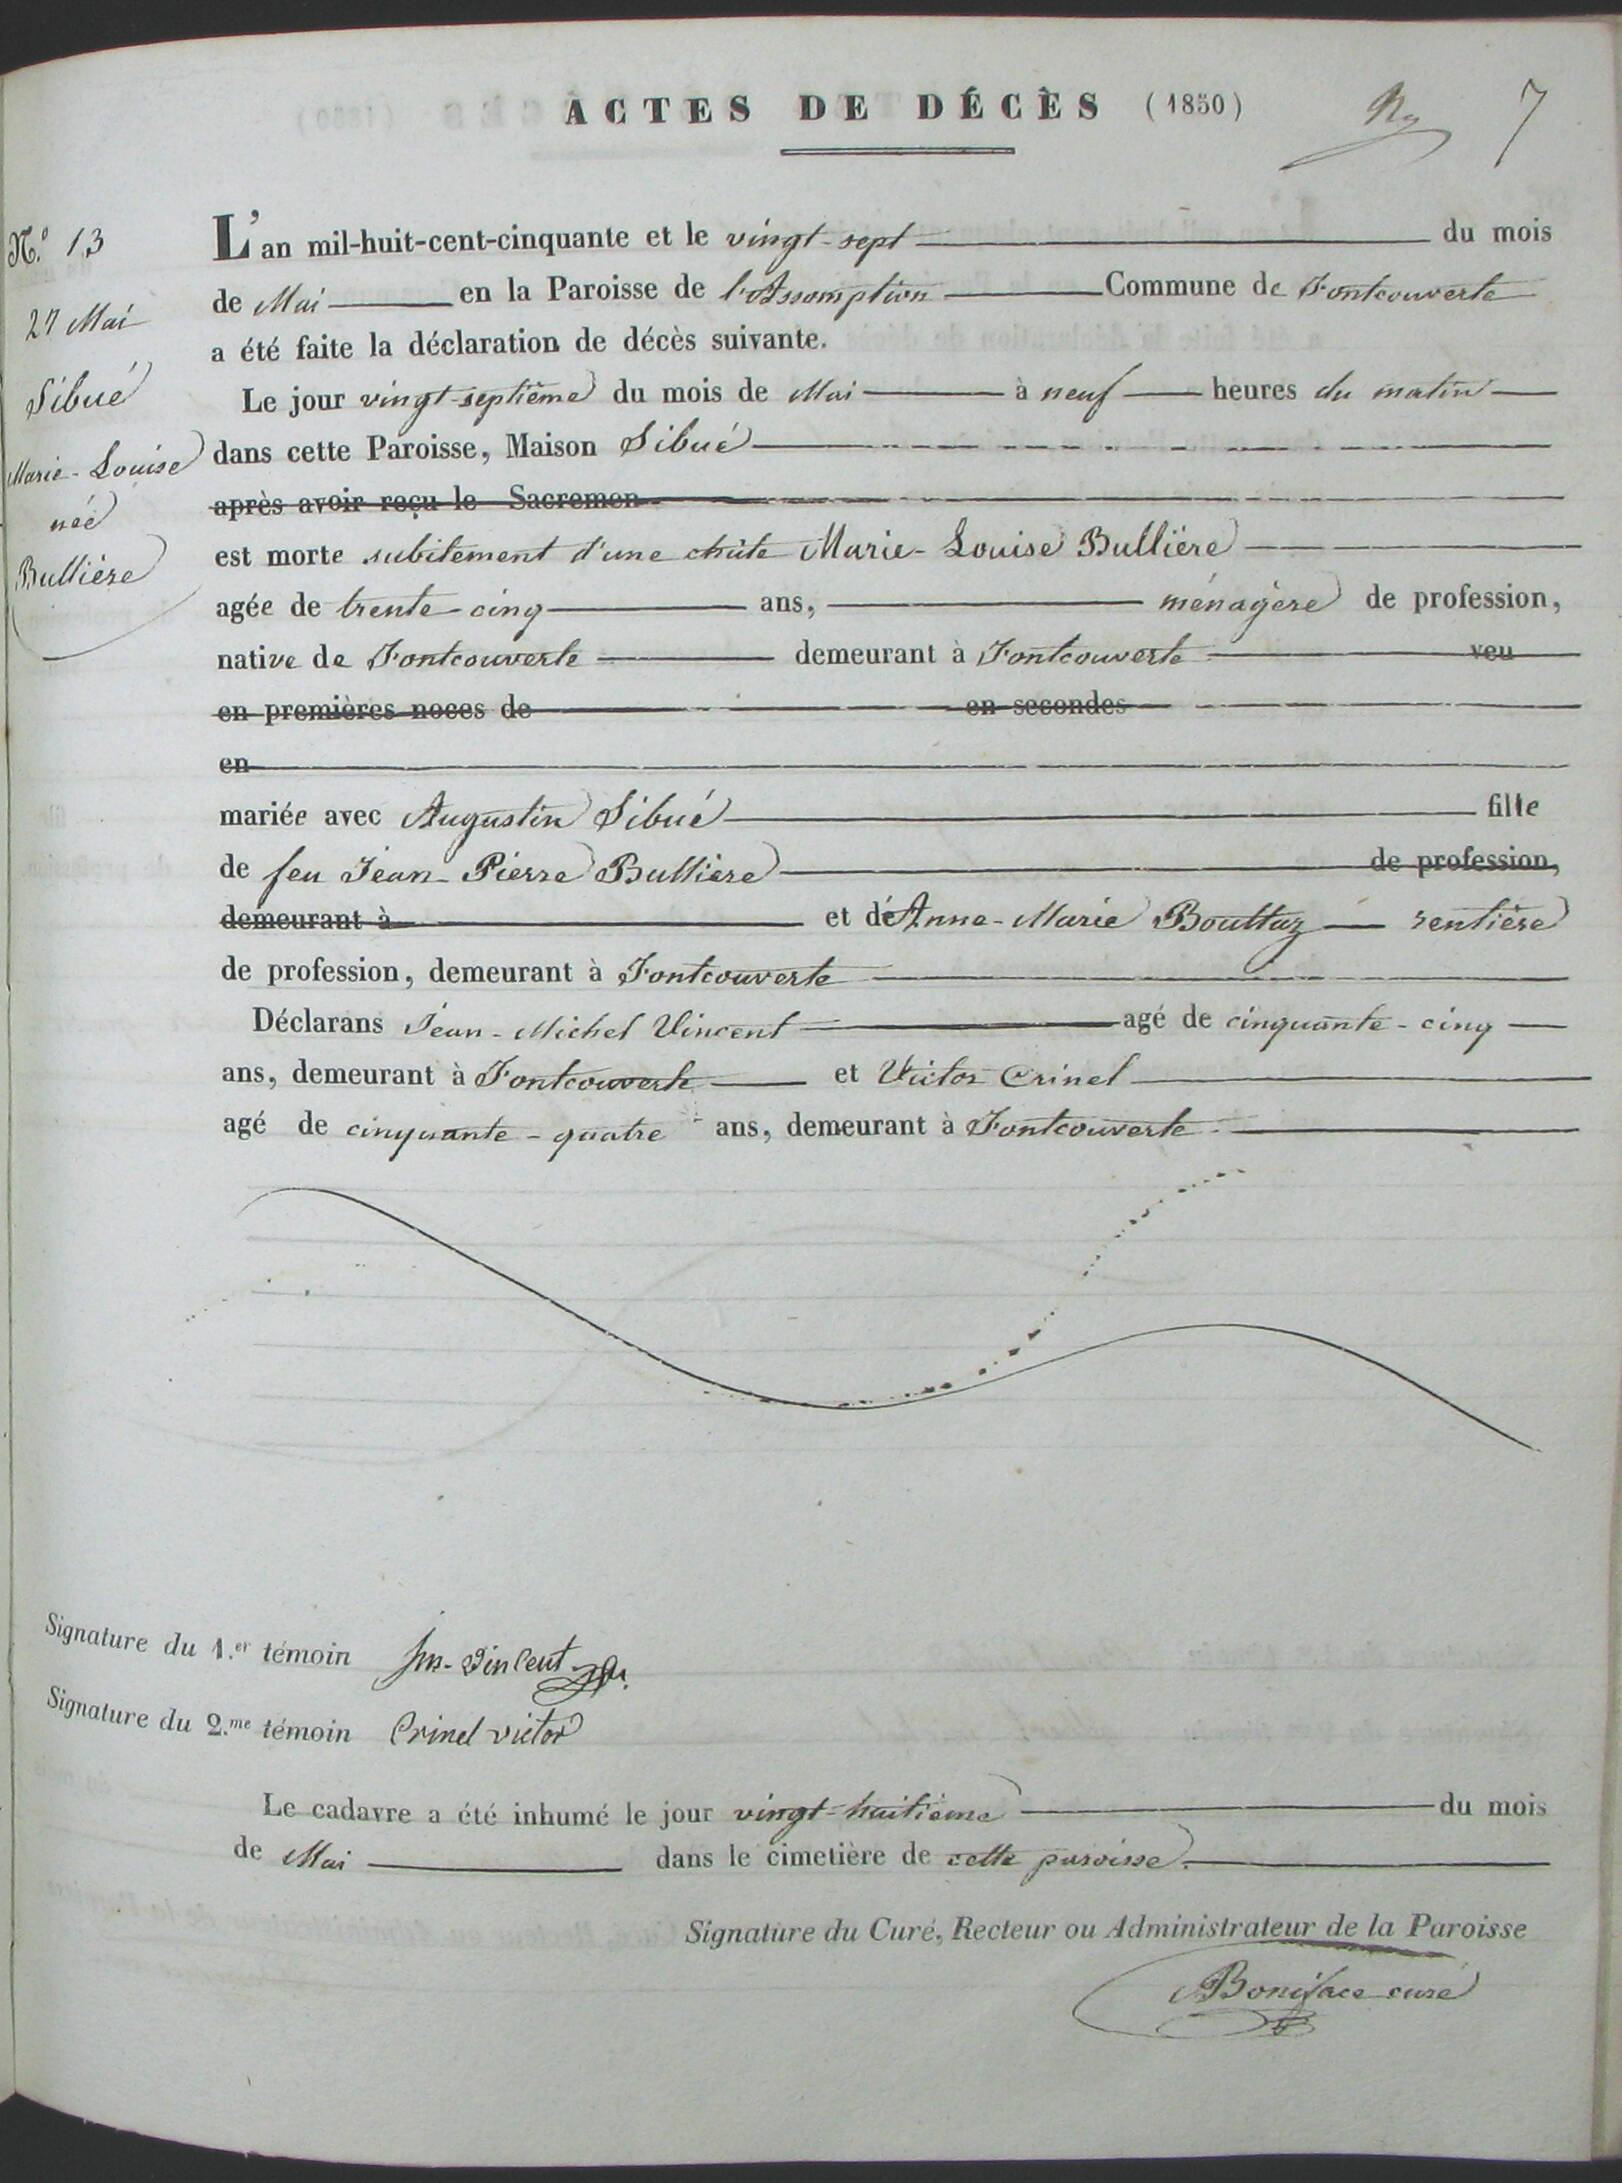 ACTES DE DÉCÈS (1850)
7
N.º 13
27 Mai
Sibué
Marie-Louise
née
Bullière
L'an mil-huit-cent-cinquante et le vingt-sept du mois
de Mai en la Paroisse de l'Assomption Commune de Fontcouverte
a été faite la déclaration de décès suivante.
Le jour vingt-septième du mois de Mai à neuf heures du matin
dans cette Paroisse, Maison Sibué
après avoir reçu le Sacremen
est morte subitement d'une chûte Marie-Louise Bullière
agée de trente-cinq ans, ménagère de profession,
native de Fontcouverte demeurant à Fontcouverte veu
en premières noces de en secondes
en
mariée avec Augustin Sibué fille
de feu Jean-Pierre Bullière de profession,
demeurant à et de Anne-Marie Bouttaz rentière
de profession, demeurant à Fontcouverte
Déclarans Jean-Michel Vincent agé de cinquante-cinq
ans, demeurant à Fontcouverte et Victor Crinel
agé de cinquante-quatre ans, demeurant à Fontcouverte.
Signature du 1.er témoin Jn-Vincent
Signature du 2.me témoin Crinel victor
Le cadavre a été inhumé le jour vingt-huitième du mois
de Mai dans le cimetière de cette paroisse.
Signature du Curé, Recteur ou Administrateur de la Paroisse
Boniface curé